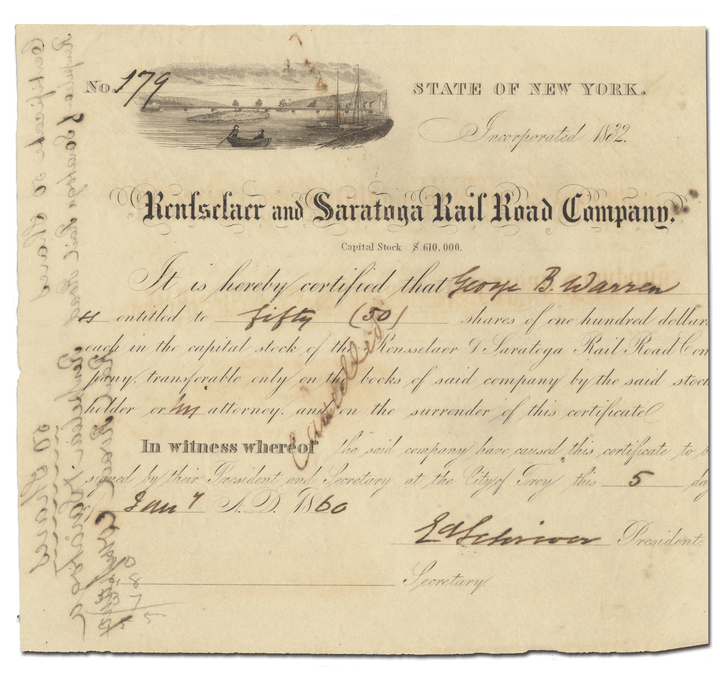 No. 179
STATE OF NEW YORK.
Incorporated 1832.
Rensselaer and Saratoga Rail Road Company.
Capital Stock $ 610,000.
It is hereby certified that George B. Warren
is entitled to fifty (50) shares of one hundred dollar
each in the capital stock of the Rensselaer & Saratoga Rail Road Com
pany, transferable only on the books of said company by the said stock
holder or his attorney, and on the surrender of this certificate
Cancelled
In witness whereof the said company have caused this certificate to b
signed by their President and Secretary at the City of Troy this 5 day
Jany A. D. 1860
Ed Schriver President
Secretary